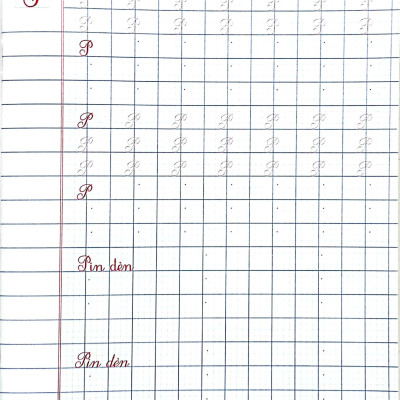 P P P P P P P
P
P P P P P P P
P P P P P P P
P P P P P P P
P
Pin đèn
Pin đèn